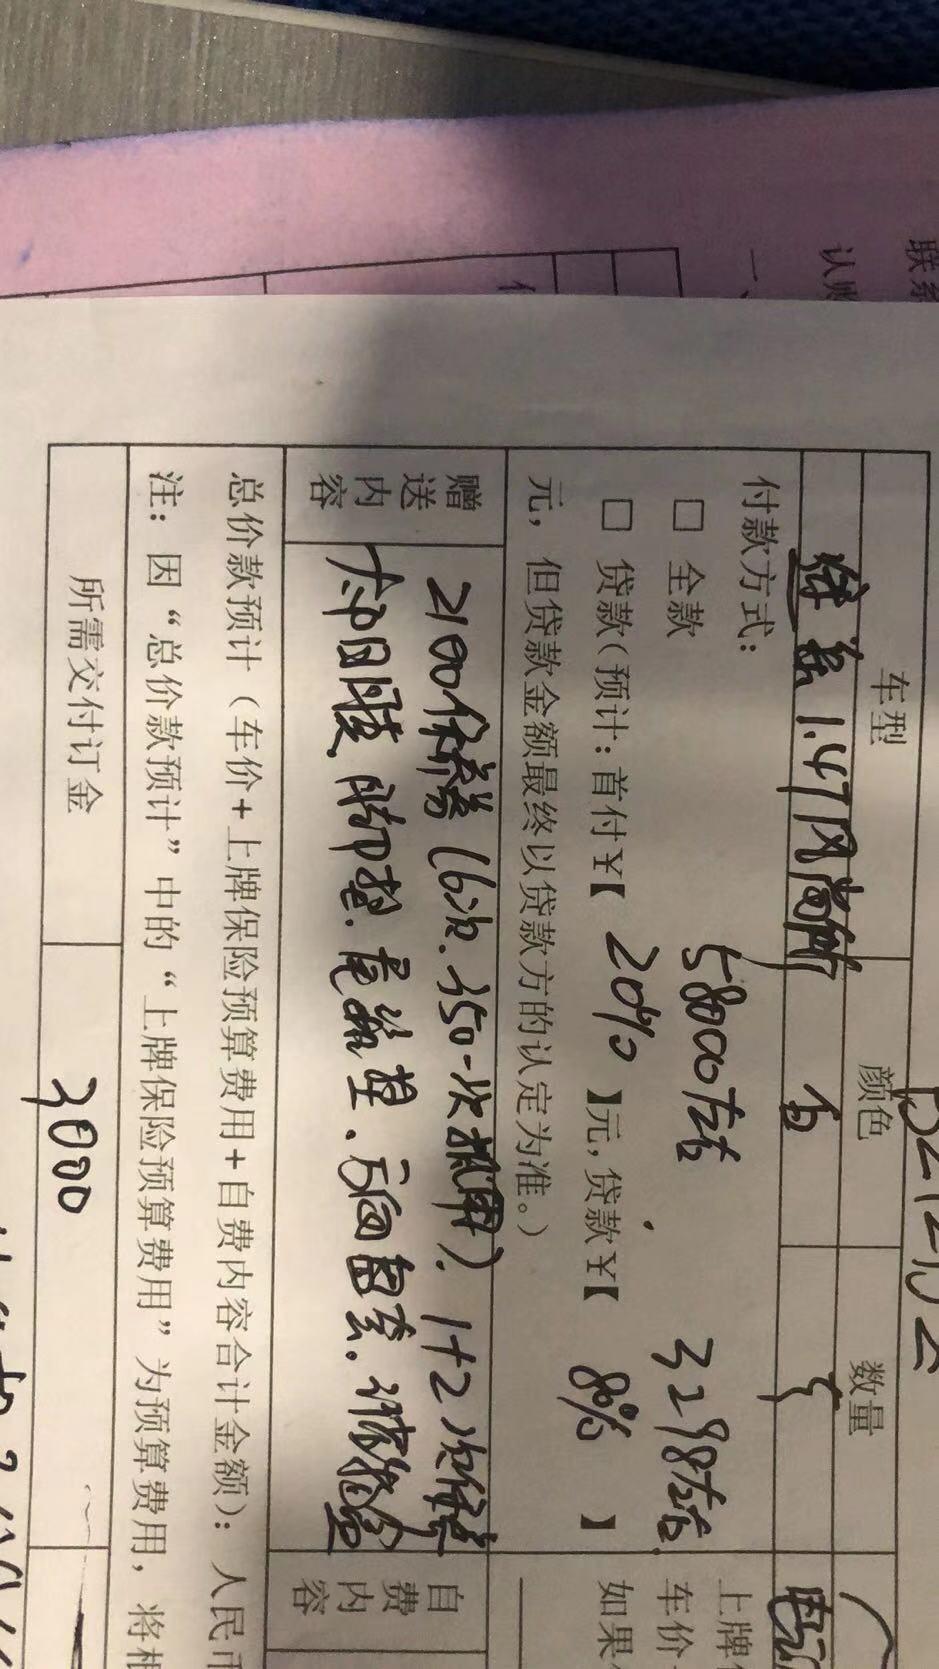 联系
认购
一、
车型 颜色 数量
1.4T风尚 白
付款方式：
58000左右
□ 全款 3298左右
□ 贷款（预计：首付￥【 20% 】元，贷款￥【 80% 】
元，但贷款金额最终以贷款方的认定为准。）
上牌保
车价
如果
赠送内容
2100保养（6次.350一次抵用）. 1+2次保养
太阳膜.脚垫.尾箱垫.
自费内容
总价款预计（车价+上牌保险预算费用+自费内容合计金额）：人民币
注：因“总价款预计”中的“上牌保险预算费用”为预算费用，将根
所需交付订金 3000